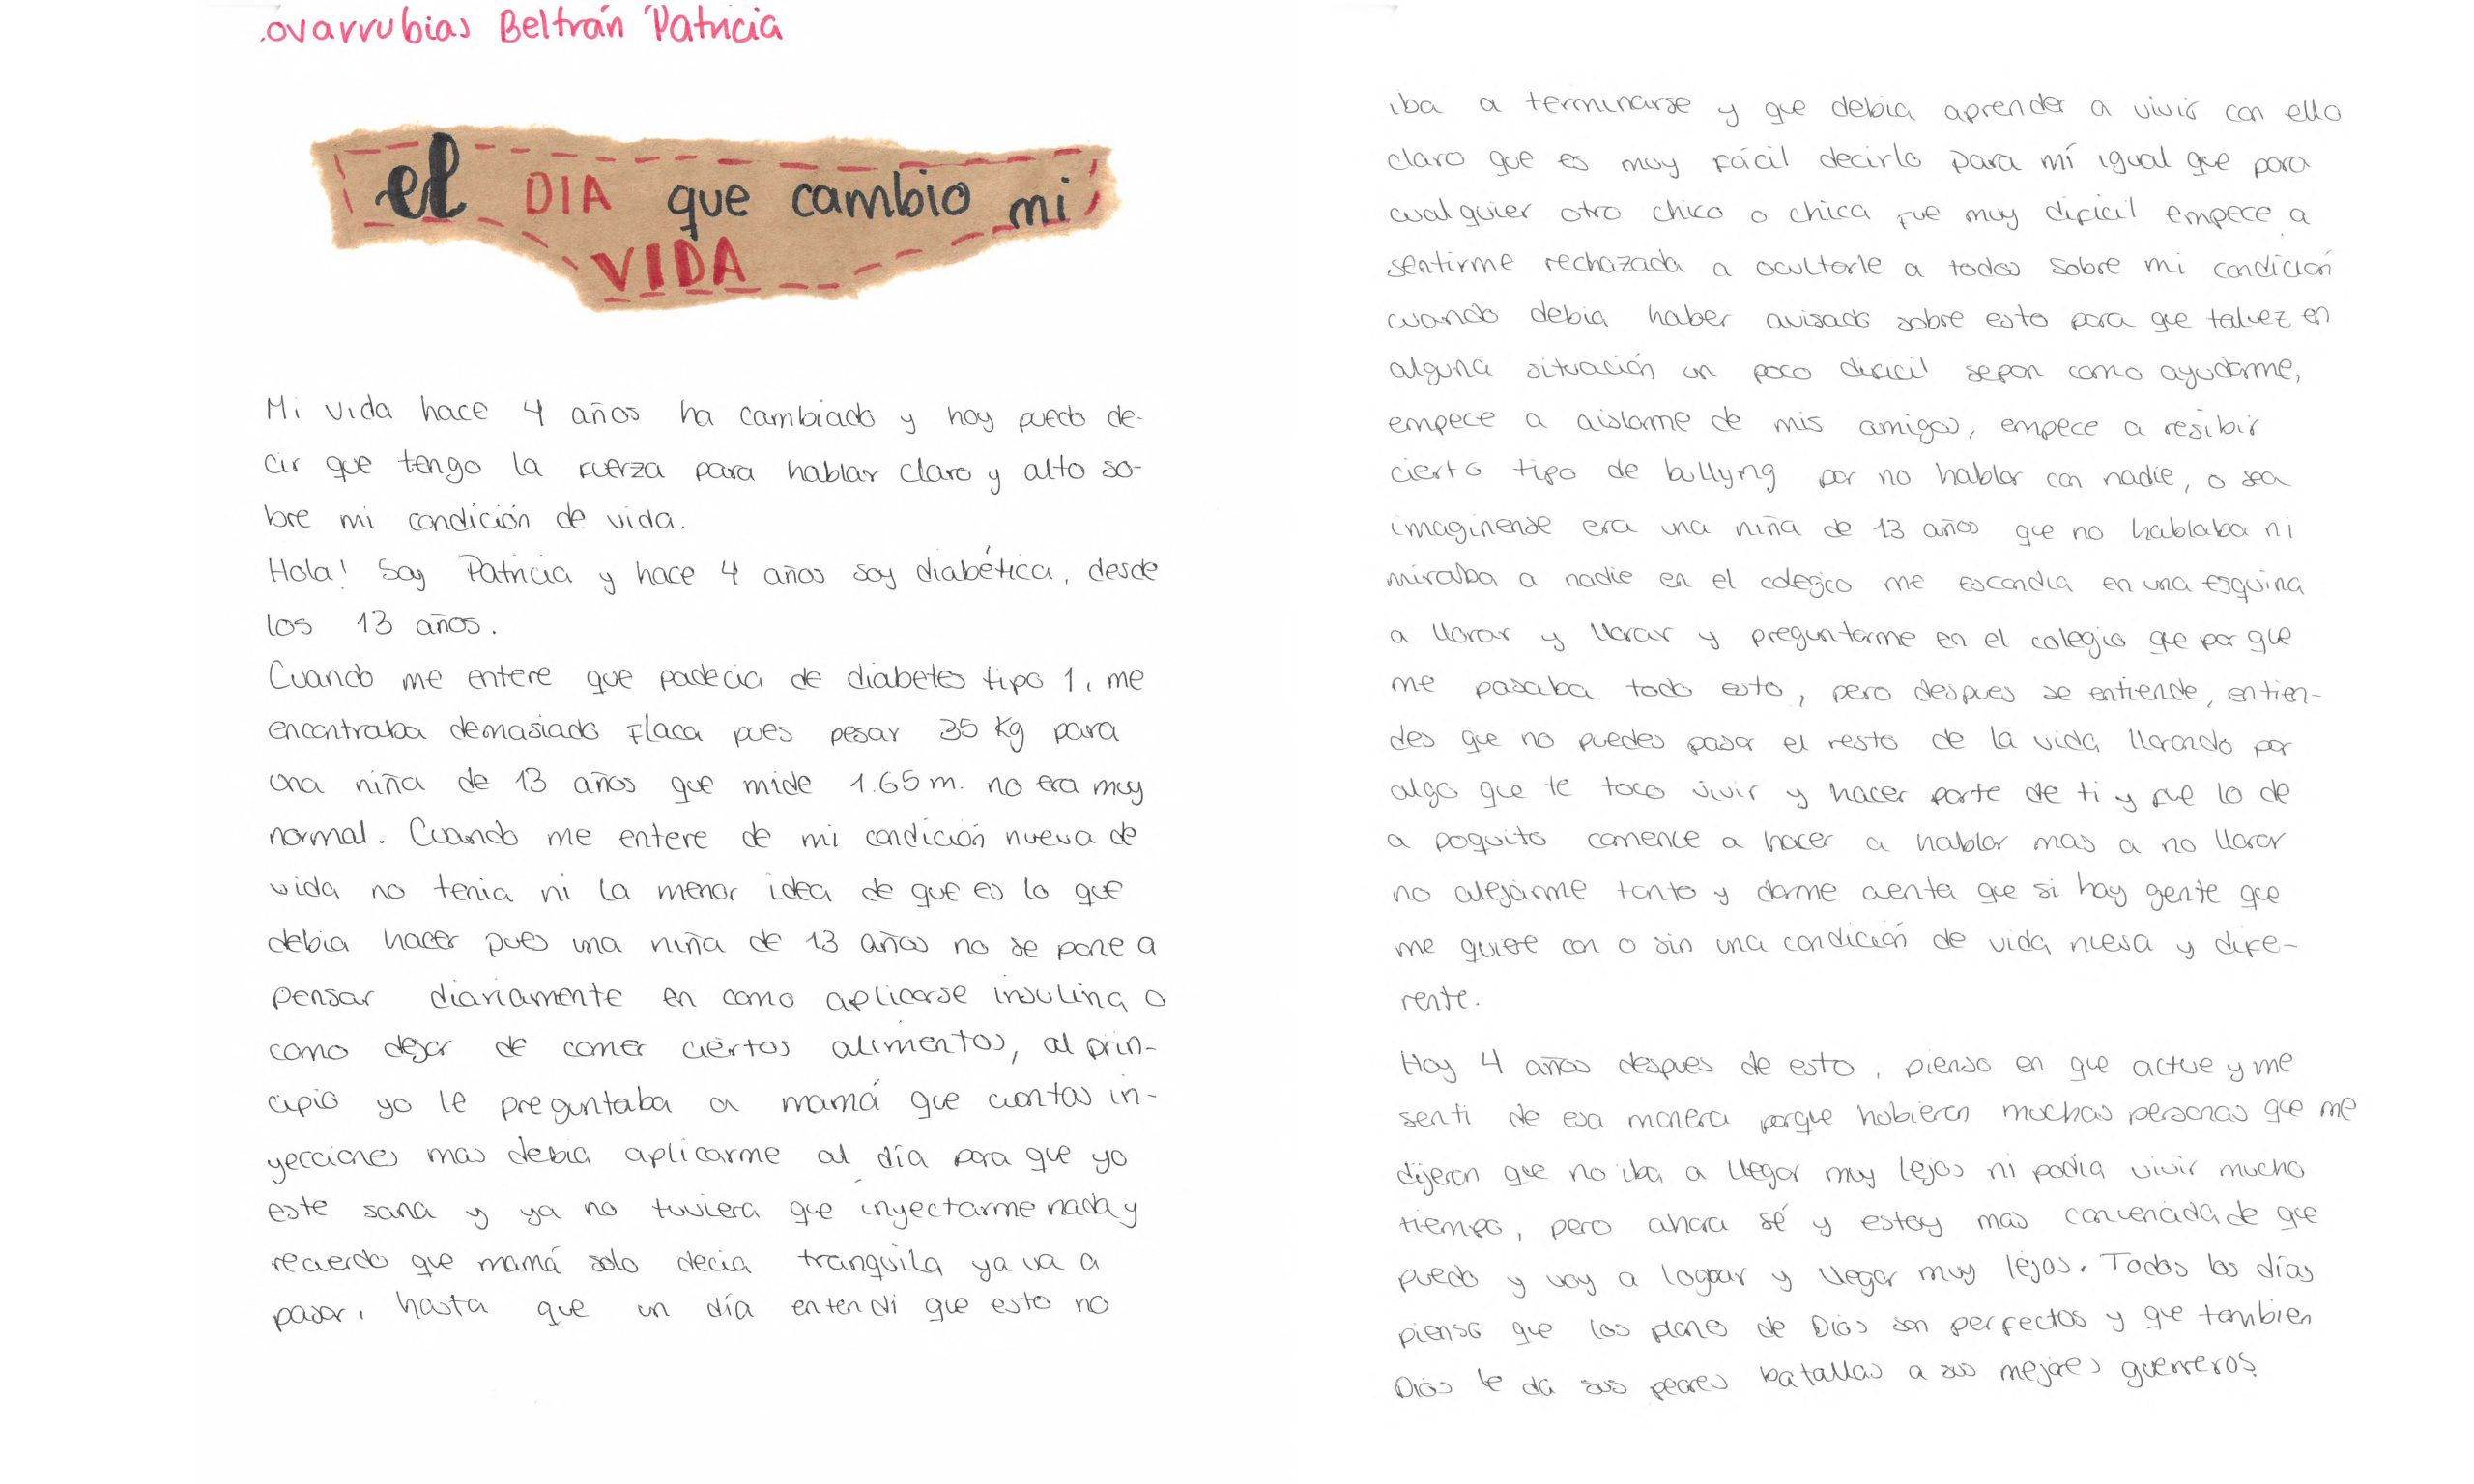 .ovarrubias Beltrán Patricia
el DIA que cambio mi
VIDA
Mi vida hace 4 años ha cambiado y hoy puedo de-
cir que tengo la fuerza para hablar claro y alto so-
bre mi condición de vida.
Hola! Soy Patricia y hace 4 años soy diabética, desde
los 13 años.
Cuando me entere que padecia de diabetes tipo 1, me
encontraba demasiado flaca pues pesar 35 Kg para
una niña de 13 años que mide 1.65 m. no era muy
normal. Cuando me entere de mi condición nueva de
vida no tenia ni la menor idea de que es lo que
debia hacer pues una niña de 13 años no se pone a
pensar diariamente en como aplicarse insulina o
como dejar de comer ciertos alimentos, al prin-
cipio yo le preguntaba a mamá que cuantas in-
yecciones mas debia aplicarme al día para que yo
este sana y ya no tuviera que inyectarme nada y
recuerdo que mamá solo decia tranquila ya va a
pasar, hasta que un día entendi que esto no
iba a terminarse y que debia aprender a vivir con ello
claro que es muy fácil decirlo para mí igual que para
cualquier otro chico o chica fue muy dificil empece a
sentirme rechazada a ocultarle a todos sobre mi condición
cuando debia haber avisado sobre esto para que talvez en
alguna situación un poco dificil sepan como ayudarme,
empece a aislarme de mis amigos, empece a resibir
cierto tipo de bullyng por no hablar con nadie, o sea
imaginense era una niña de 13 años que no hablaba ni
miraba a nadie en el colegio me escondia en una esquina
a llorar y llorar y preguntarme en el colegio que por que
me pasaba todo esto, pero despues se entiende, entien-
des que no puedes pasar el resto de la vida llorando por
algo que te toco vivir y hacer parte de ti y fue lo de
a poquito comence a hacer a hablar mas a no llorar
no alejarme tanto y darme cuenta que si hay gente que
me quiere con o sin una condición de vida nueva y dife-
rente.
Hoy 4 años despues de esto, pienso en que actue y me
senti de esa manera porque hubieron muchas personas que me
dijeron que no iba a llegar muy lejos ni podía vivir mucho
tiempo, pero ahora sé y estoy mas convencida de que
puedo y voy a lograr y llegar muy lejos. Todos los días
pienso que los planes de Dios son perfectos y que tambien
Dios le da sus peores batallas a sus mejores guerreros.